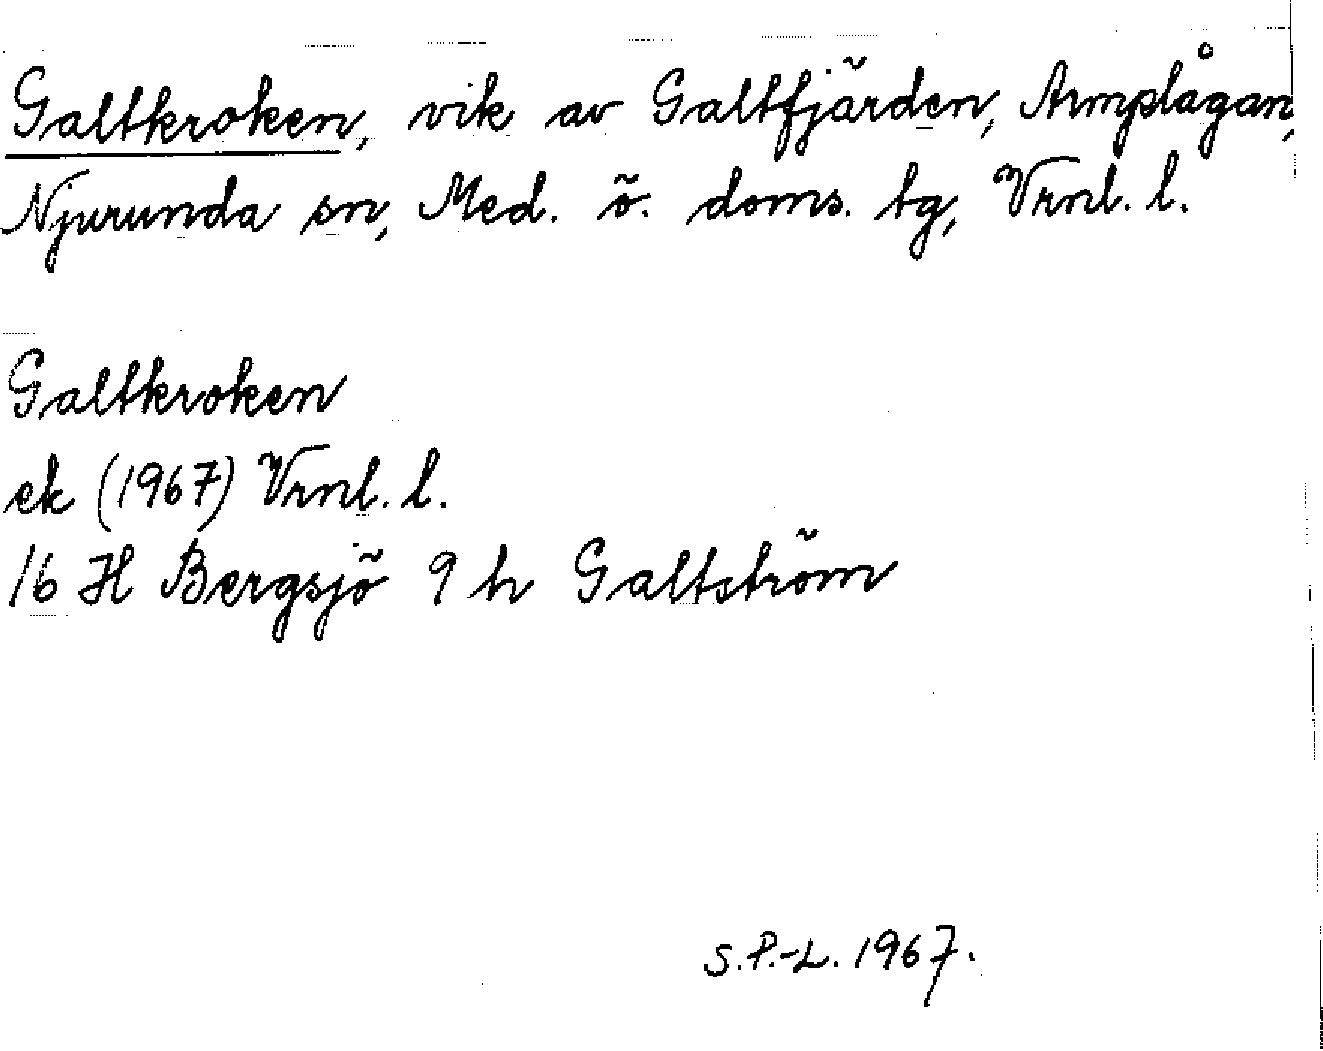 Galtkroken, vik av Galtfjärden, Armplågan,
Njurunda sn, Med. ö. doms. tg, Vrnl. l.
Galtkroken
ek (1967) Vrnl. l.
16 H Bergsjö 9 h Galtström
S.P.-L. 1967.